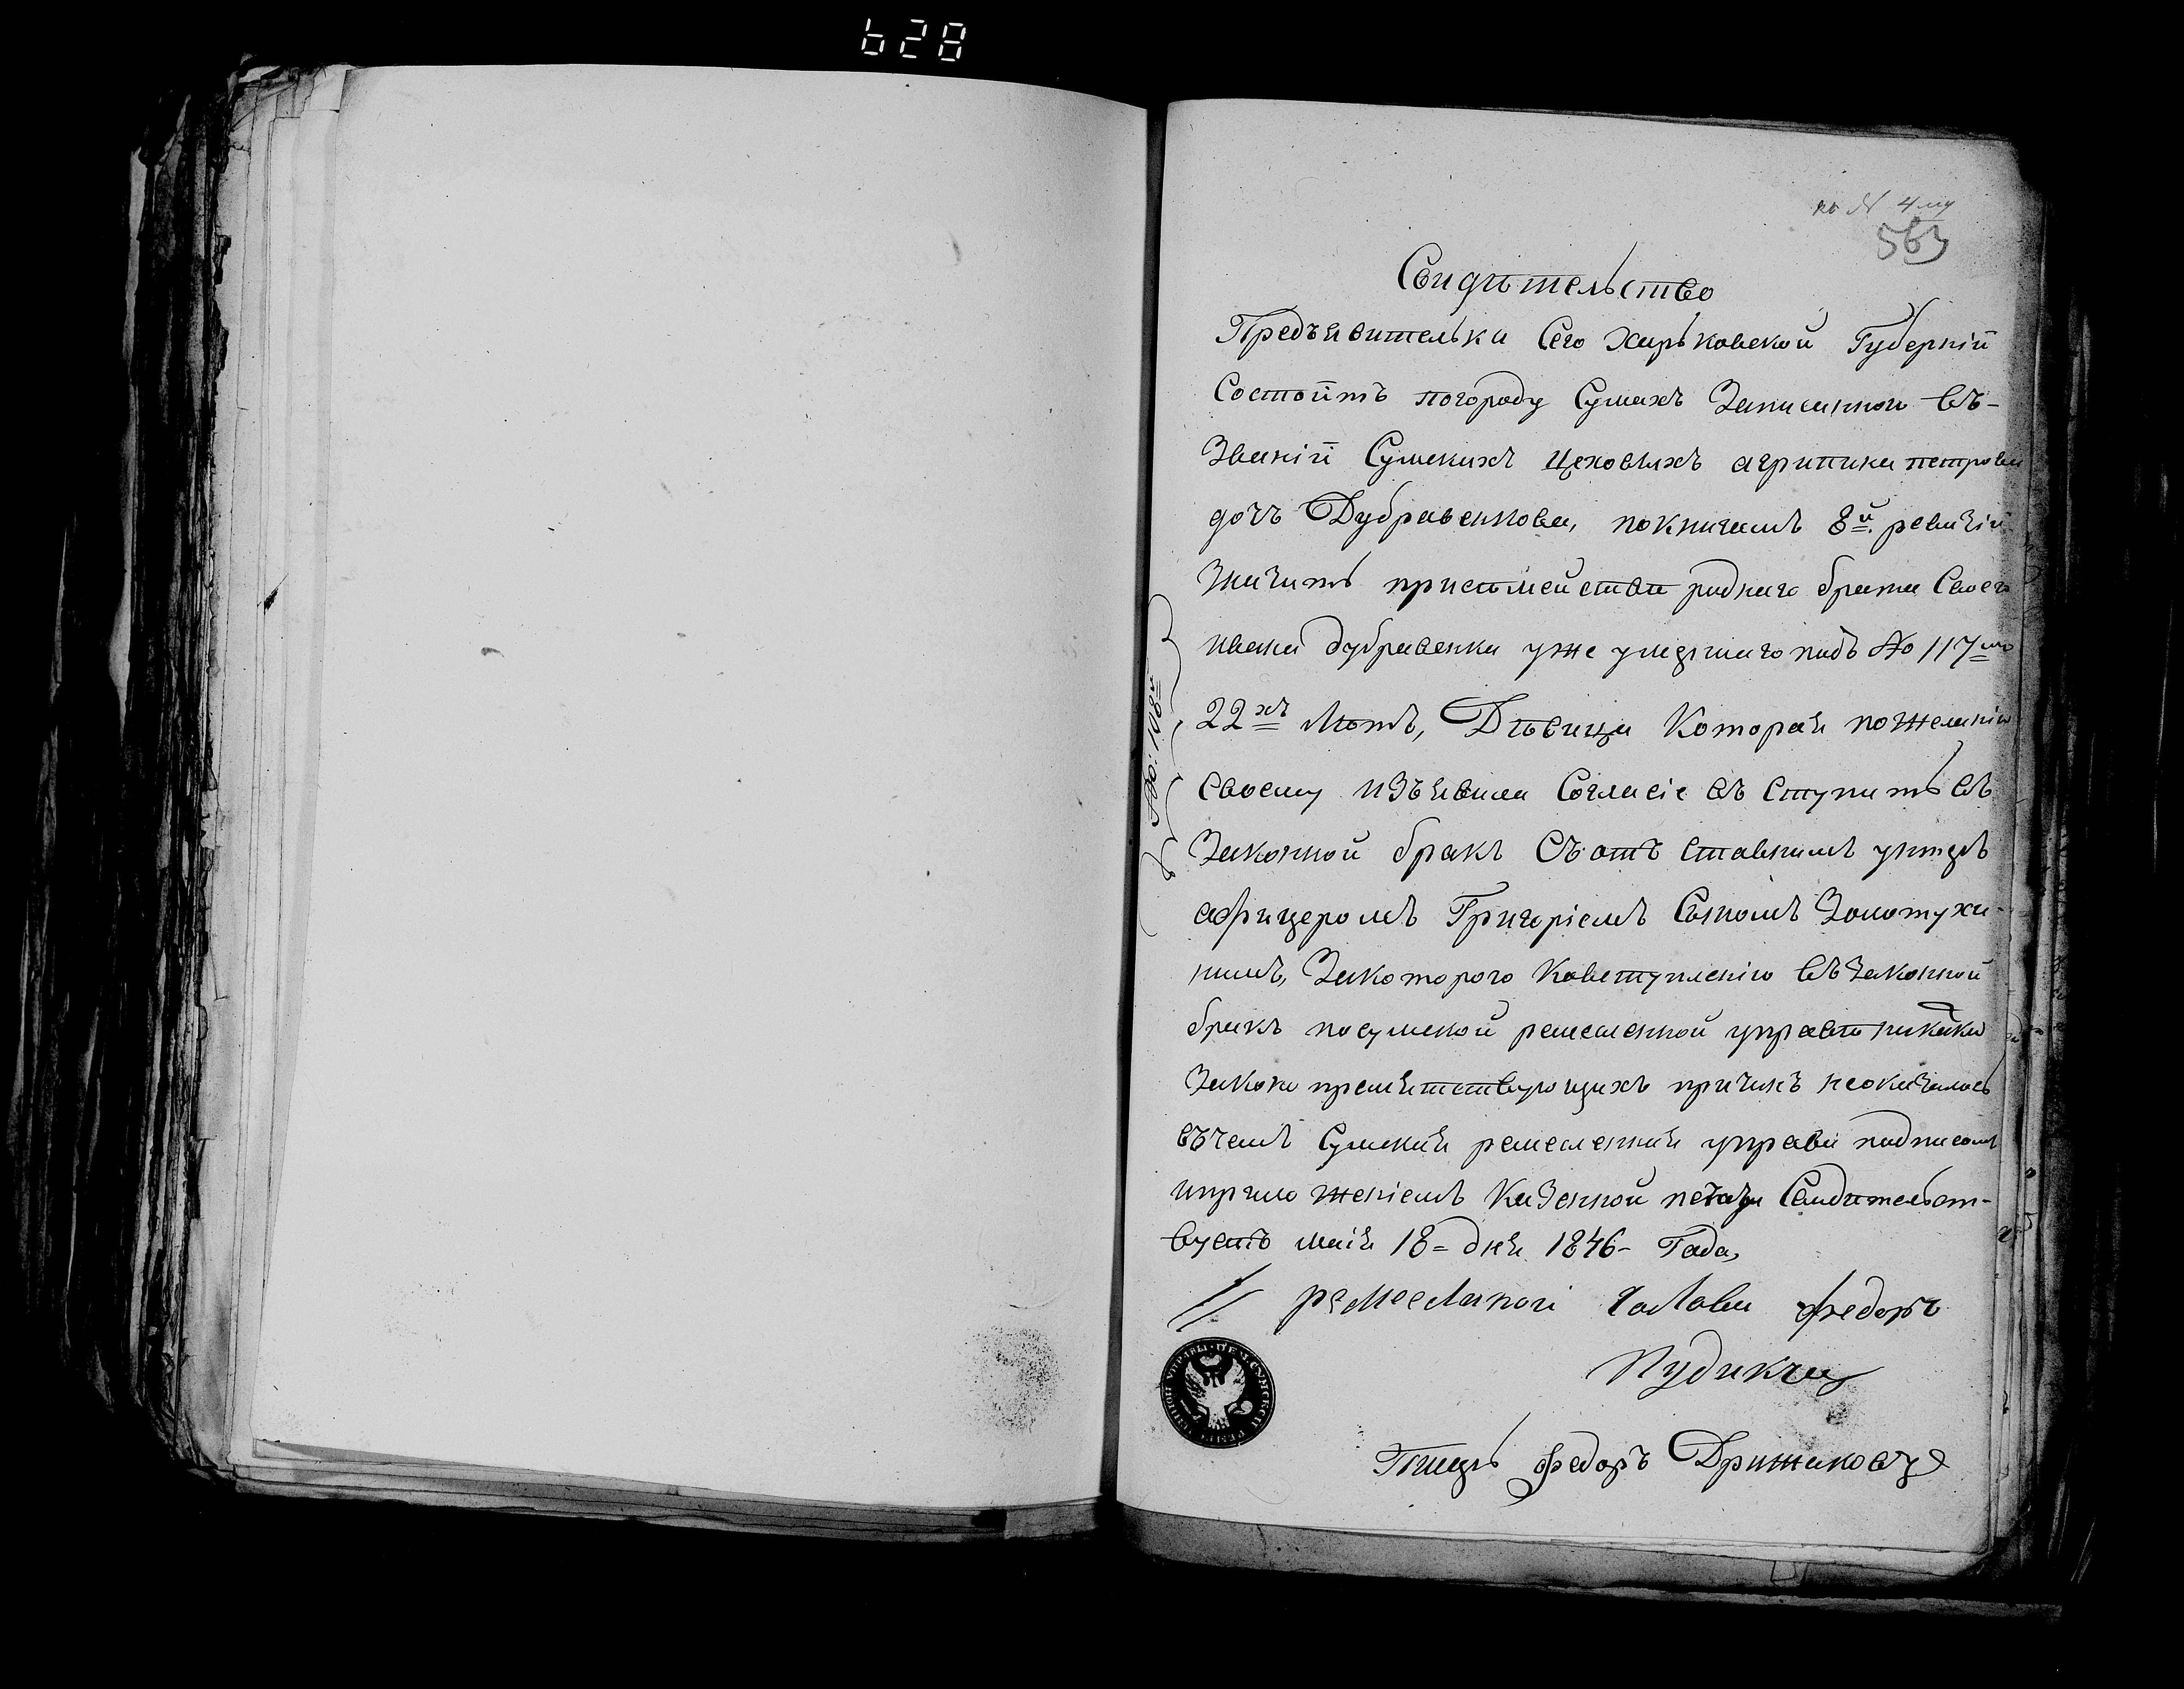 628
къ № 4му
563
Свидѣтельство
Предъявителька Сего Харьковской Губерніи
Состоитъ погороду Сумахъ Записанной въ-
Званіи Сумскихъ Цеховыхъ агрипина петрова
дочъ Дубравенкова, покнигамъ 8й. ревизіи
Значитъ присѣмействѣ роднаго брата Своего
ивана дубравенка уже умершаго подъ № 117мъ
22хъ лѣтъ, Дѣвица Которая пожеланію
Своему изъявила Согласіе въ Ступить въ
Законной бракъ Съ отъ ставнымъ унтеръ
афицеромъ Григоріемъ Сыномъ Золотухи-
нимъ, Закоторого Ковступленію въ законной
бракъ посумской ремесленной управѣ никаки
Закона препятствующихъ причинъ неоказалось
въчемъ Сумская ремесленная управа подписомъ
иприло женіемъ Казенной печати Свидѣтельст-
вуетъ маія 18= дня 1846- Года,
ремеслиной Голова федоръ
Писецъ федоръ